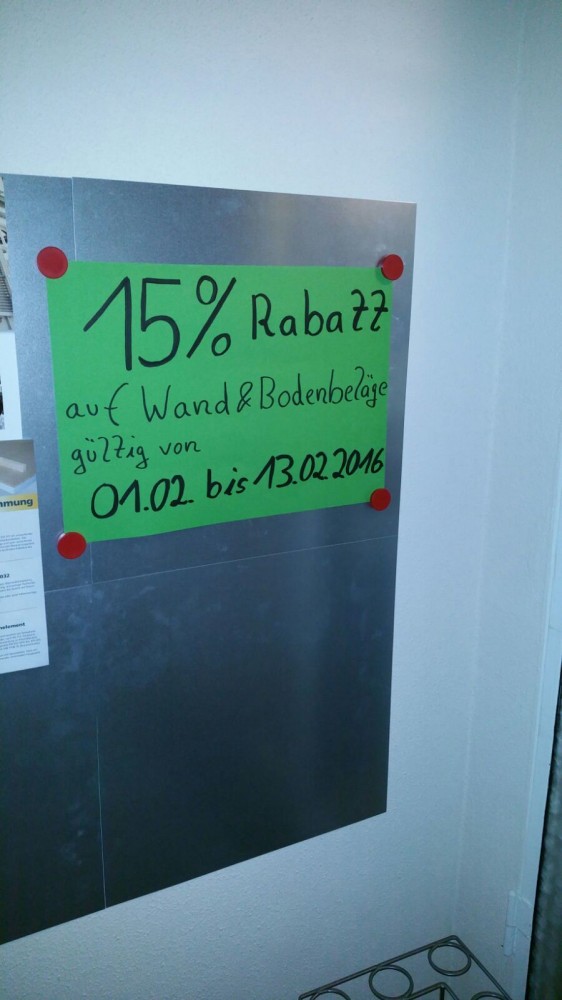 15% Rabatt
auf Wand & Bodenbeläge
gültig von
01.02. bis 13.02.2016
mmung
032
nelement